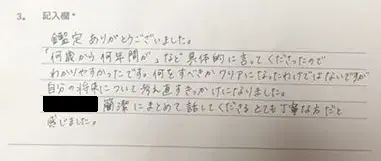 3. 記入欄*
鑑定ありがとうございました。
「何歳から何年間が」など具体的に言ってくださったので
わかりやすかったです。何をすべきかクリアになったわけではないですが
自分の将来について考え直すきっかけになりました。
簡潔にまとめて話してくださるとても丁寧な方だと
感じました。